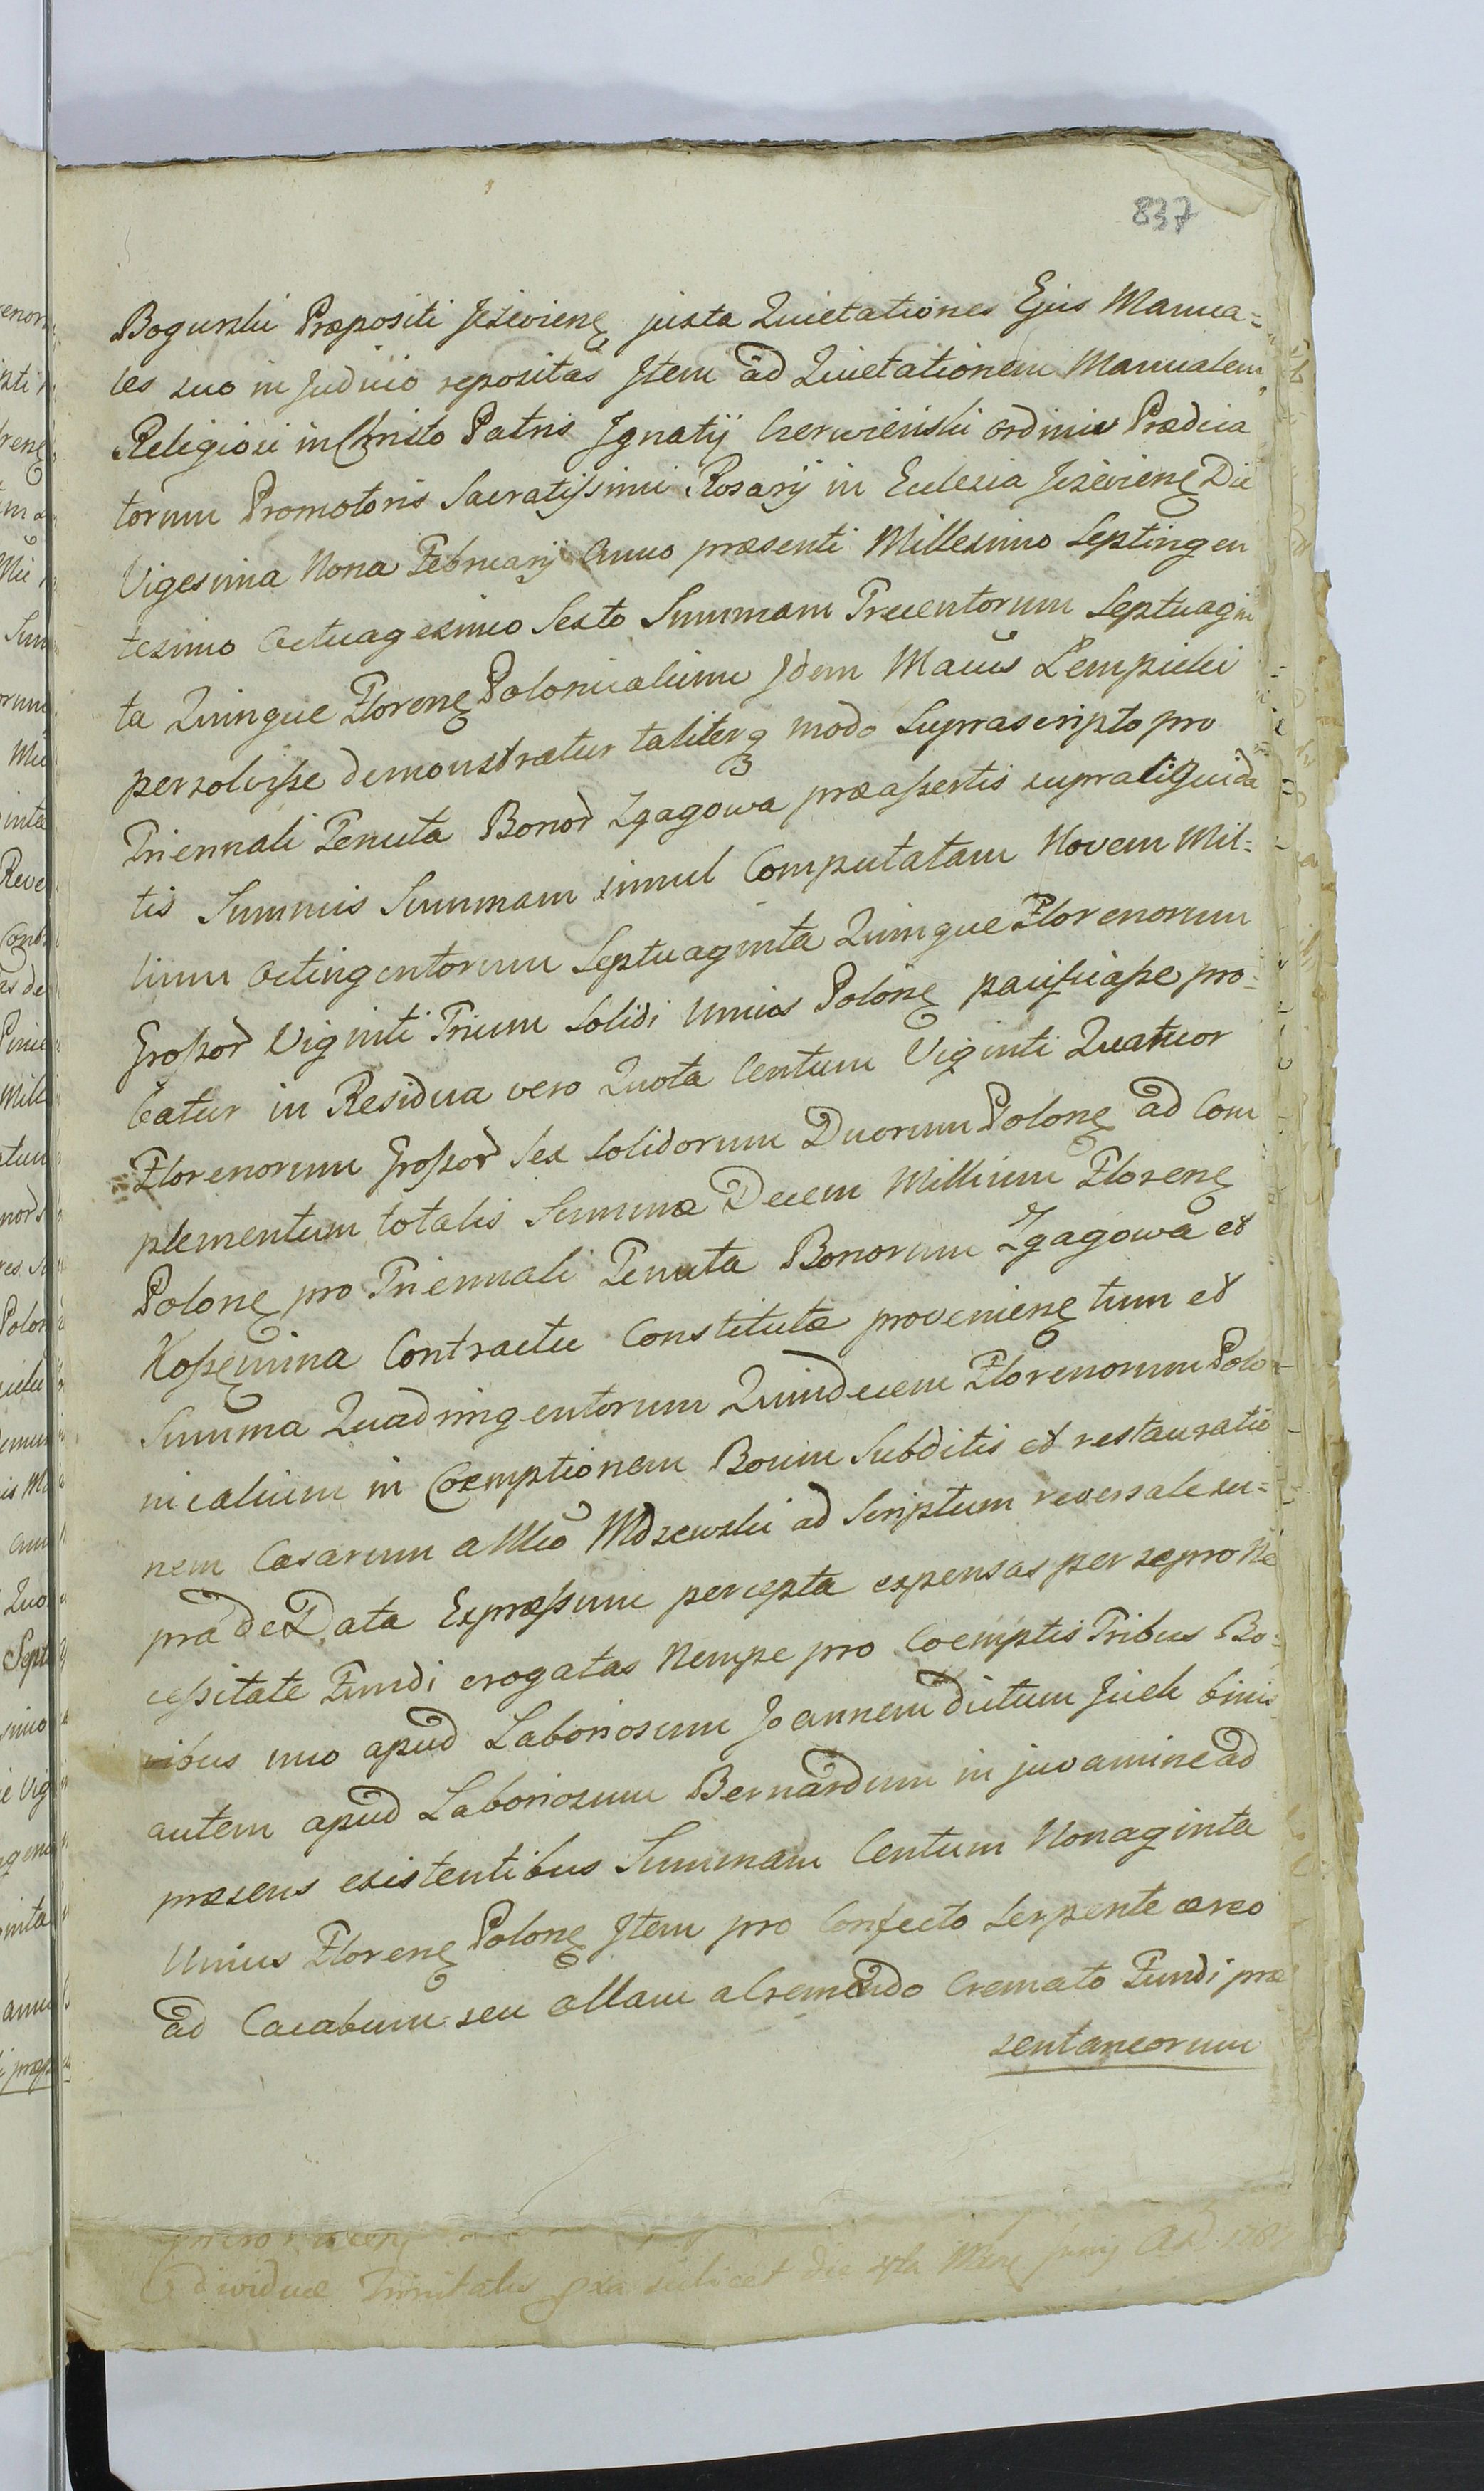 837
Bogurski Præpositi Jeżeviensę juxta Quietationes Ejus Manua=
les suo in Judicio repositas Item ad Quietationem Manualem
Religiosi in Christo Patris Ignatij Czerwieński ordinis Prædica
torum Promotoris Sacratissimi Rosarij in Ecclesia Jeżevienę Die
Vigesima Nona Februarij Anno præsenti Millesimo Septingen
tesimo Octuagesimo Sexto Summam Trecentorum Septuagin
ta Quinque Florenę Polonicalium Idem Mācus Łempicki
persolviſse demonstratur taliterq modo Suprascripto pro
Triennali Tenuta Bonor Zgagowa præaſsertis supraliquida
tis Summis Summam simul Computatam Novem Mil=
lium Octingentorum Septuaginta Quinque Florenorum
Groſsor Viginti Trium Solidi Unius Polonę pacificaſse pro=
batur in Residua vero Quota Centum Viginti Quatuor
Florenorum Groſsor Sex Solidorum Duorum Polonę ad Com
plementum totalis Summæ Decem Millium Florenę
Polonę pro Triennali Tenuta Bonorum Zgagowa et
Koſsęmina Contractu Constitutæ provenienę tum et
Summa Quadringentorum Quindecem Florenorum Polo=
nicalium in Coemptionem Boum Subditis et restauratio
nem Casarum a Mco Mdzewski ad Scriptum reversale su=
pra de Data Expreſsum percepta expensas per se pro Ne
ceſsitate Fundi erogatas Nempe pro Coemptis Tribus Bo=
vibus uno apud Laboriosum Joannem dictum Juch binis
autem apud Laboriosum Bernardum in juvamine ad
præsens existentibus Summam Centum Nonaginta
Unius Florenę Polonę Item pro Confecto Serpente æreo
ad Cacabum seu ollam a Cremando Cremato Fundi præ
sentaneorum
dividuæ Trinitatis scilicet die Junij AD